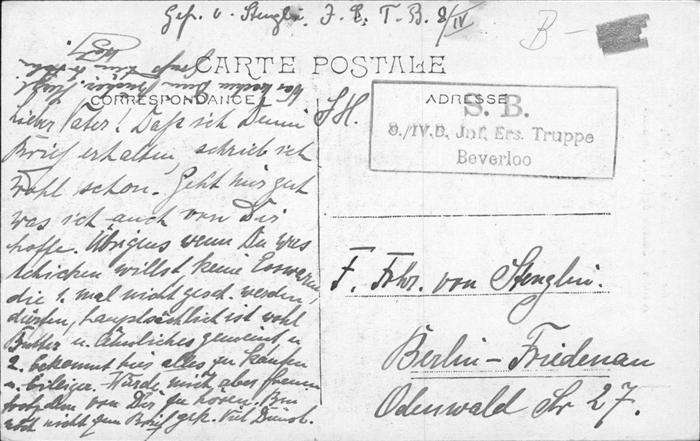 Gefr. v. Stenglin. J. E. T. B. 8/IV
B-
CARTE POSTALE
CORRESPONDANCE
ADRESSE
S. B.
8./IV.B. Jnf. Ers. Truppe
Beverloo
Lieber Vater! Daß ich Deinen
Brief erhalten, schrieb ich
wohl schon. Geht mir gut
was ich auch von Dir
hoffe. Übrigens wenn Du was
schicken willst keine Esswaren,
die 1. mal nicht gesch. werden
dürfen, hauptsächlich ist wohl
Butter u. Ähnliches gemeint u
2. bekommt hier alles zu kaufen
u. billiger. Würde mich aber freuen
trotzdem von Dir zu hören. Bin
nicht zum Brief gek. Viel Dienst.
F. Frhr. von Stenglin.
Berlin-Friedenau
Odenwald Str 27.